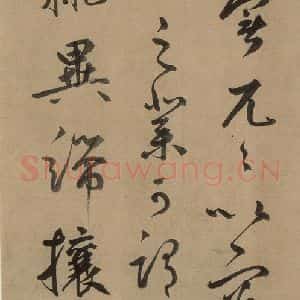 兀々以窮
之業可謂
排異端攘
Shufawang.CN